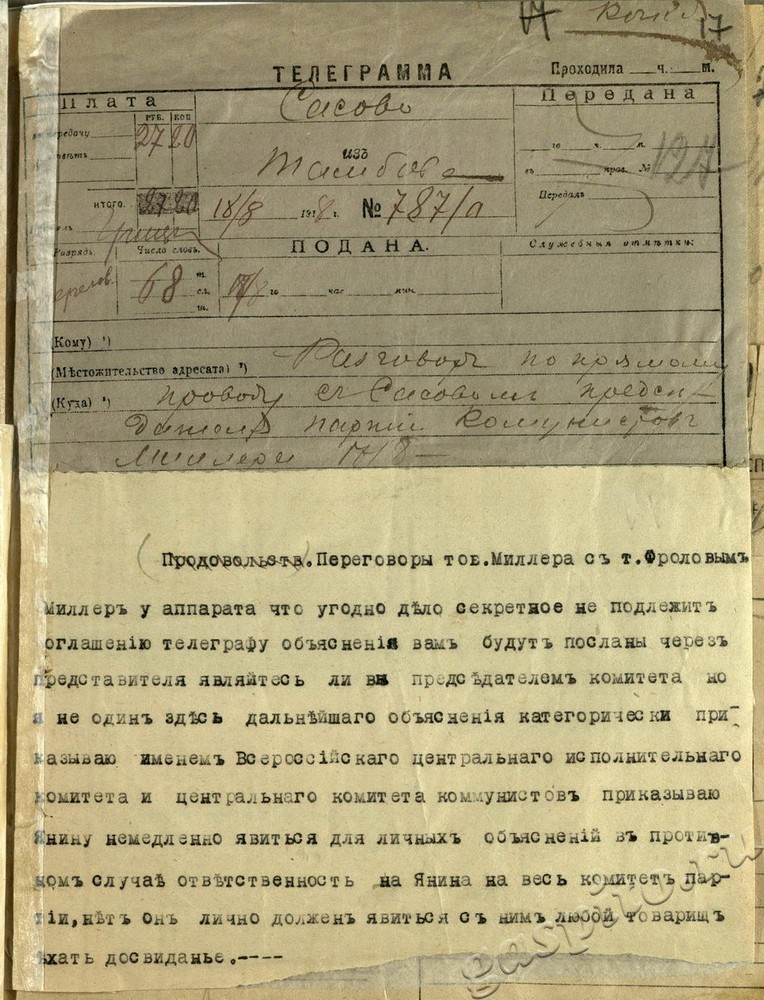 17
ТЕЛЕГРАММА
Проходила ч. т.
Плата
Передана
РУБ. КОП
27 20
Сасово
изъ
го ч. п.
въ пров. №
Передалъ
ИТОГО.
27 20
18/8 1918 г. № 787/п
ПОДАНА.
Служебныя отмѣтки:
Разрядъ. Число словъ.
68
т.
сл.
ш.
го час мин.
(Кому) *)
(Мѣстожительство адресата) *) Разговоръ по прямому
(Куда) *) проводу съ Сасовомъ предсѣ
дателя партіи Комунистовъ
Миллера 17/8 —
Продовольств. Переговоры тов.Миллера съ т.Фроловымъ
Миллеръ у аппарата что угодно дѣло секретное не подлежитъ
оглашенію телеграфу объясненія вамъ будутъ посланы черезъ
представителя являйтесь ли вы предсѣдателемъ комитета но
я не одинъ здѣсь дальнѣйшаго объясненія категорически при-
казываю именемъ Всероссійскаго центральнаго исполнительнаго
комитета и центральнаго комитета коммунистовъ приказываю
Янину немедленно явиться для личныхъ объясненій въ против-
номъ случаѣ отвѣтственность на Янина на весь комитетъ пар-
тіи,нѣтъ онъ лично долженъ явиться съ нимъ любой товарищъ
ѣхать досвиданье.----
gaspito.ru